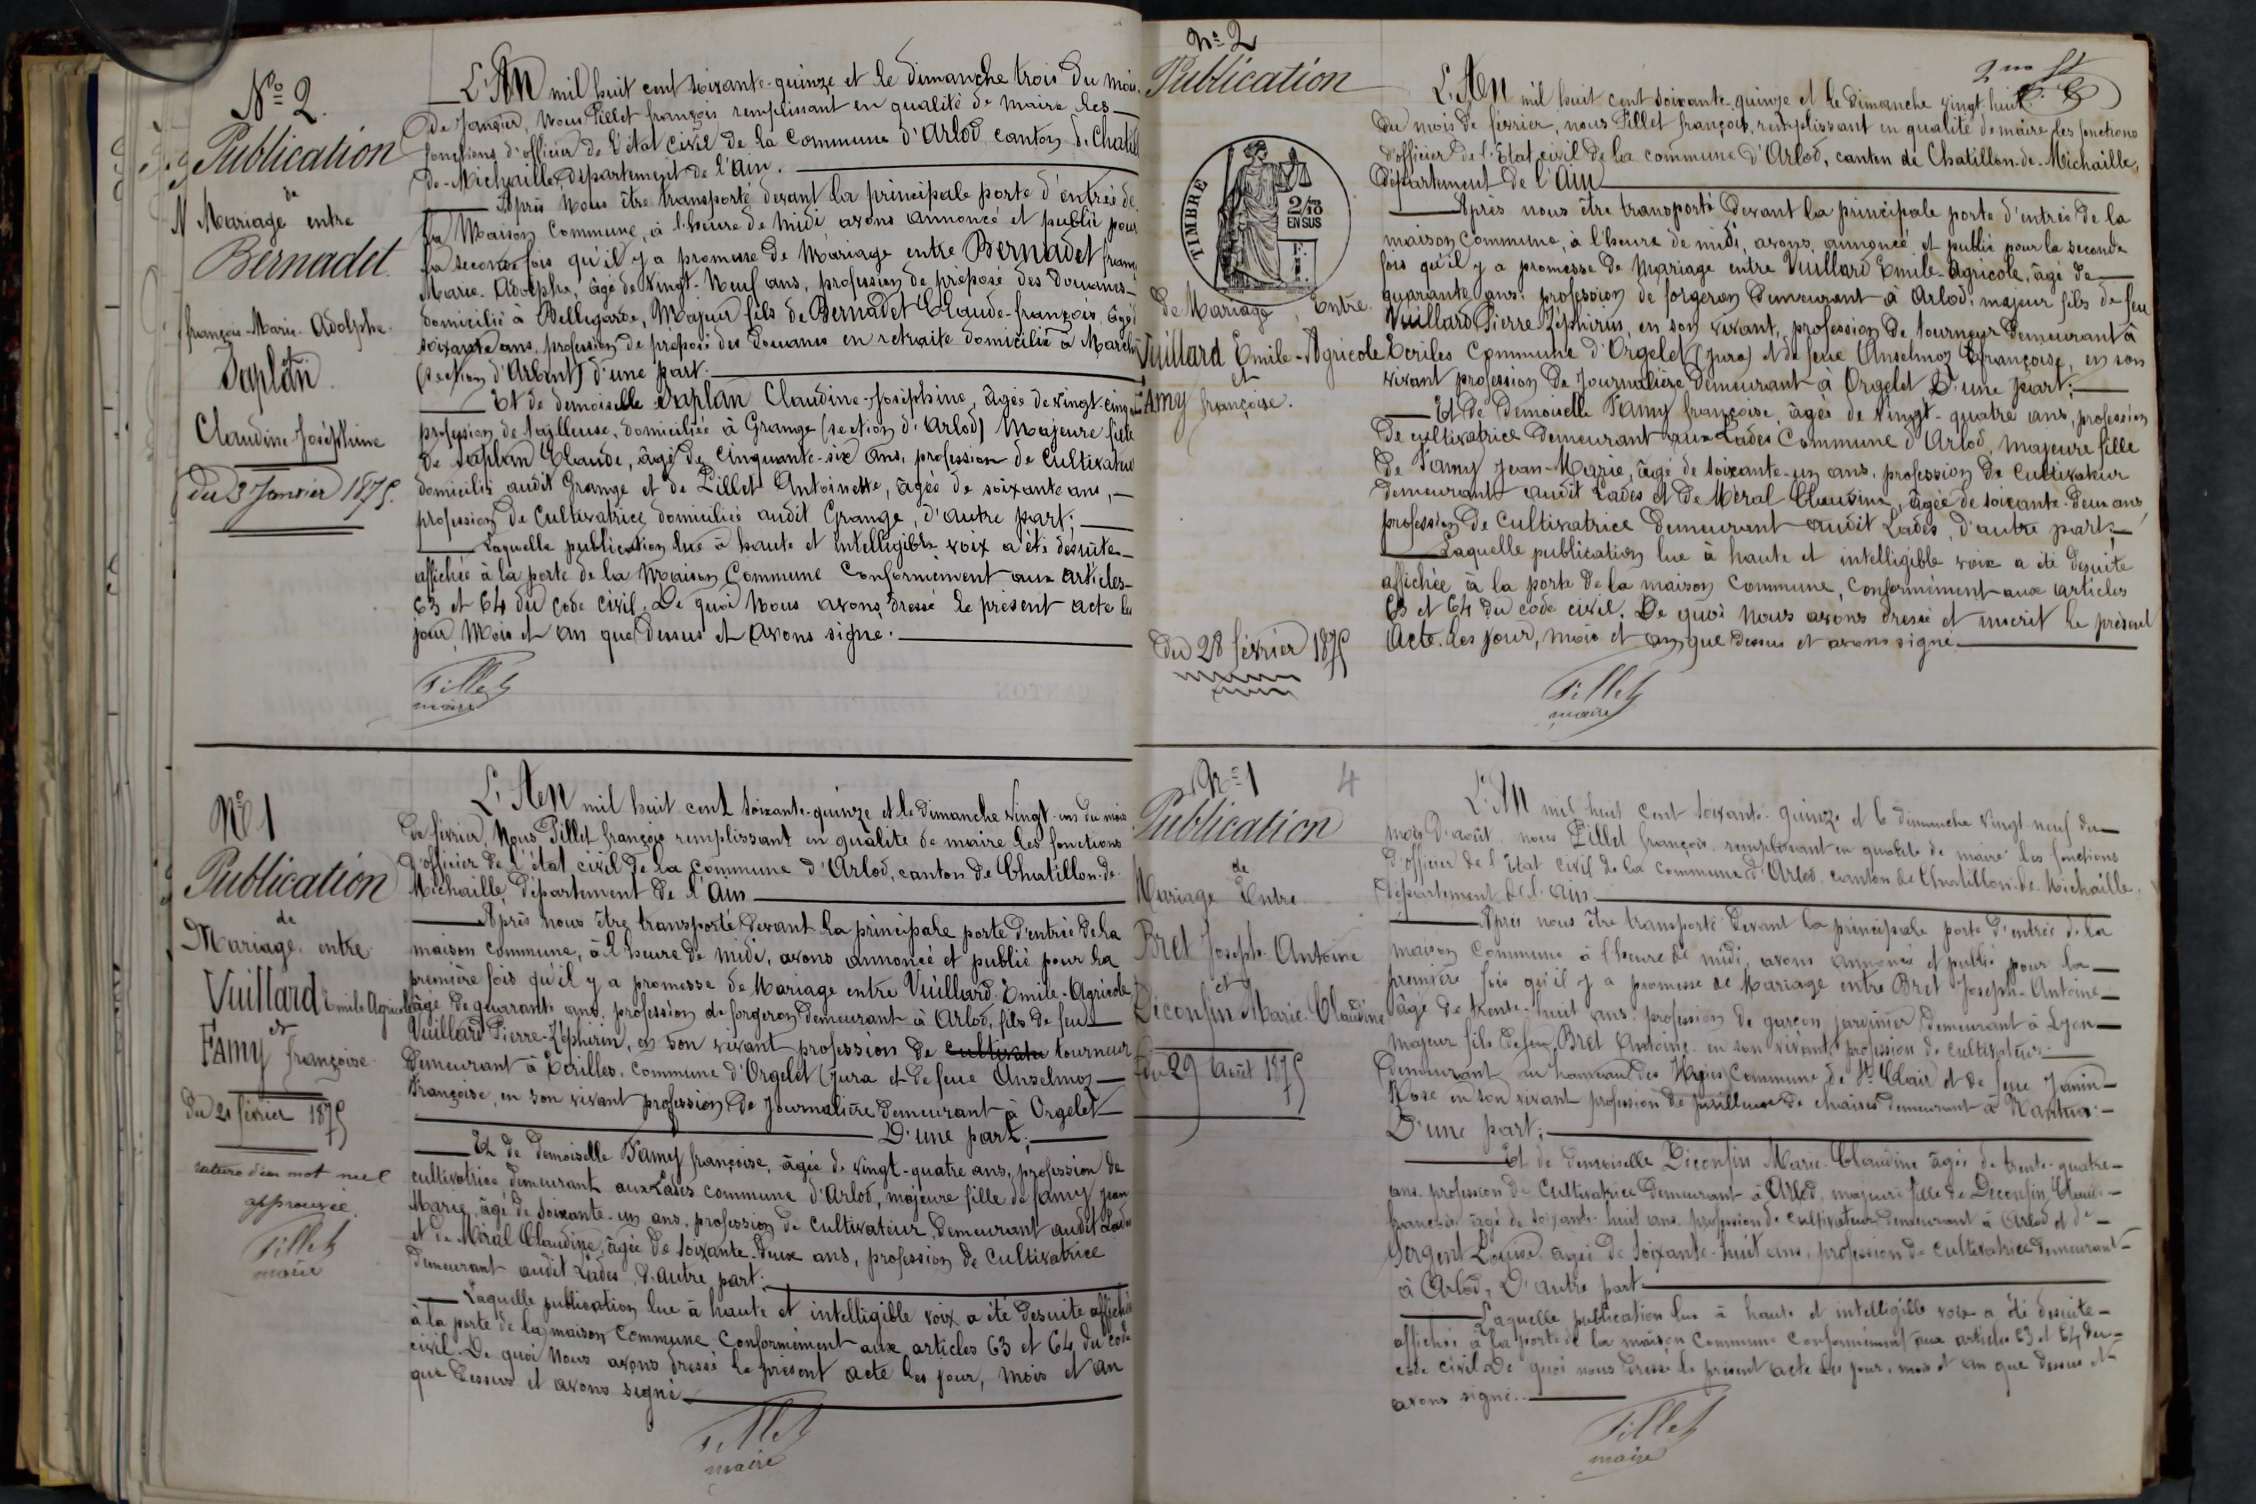 Nº 2.
Publication
de
Mariage entre
Bernadet
françois-Marie-Adolphe.
et
Saplan
Claudine Joséphine
du 3 Janvier 1875.
L'An mil huit cent soixante-quinze et le dimanche trois du mois
de Janvier, Nous Pillet françois remplissant en qualité de maire les
fonctions d'officier de l'état civil de la Commune d'Arlod canton de Chatill
de-Michaille, département de l'Ain.
Après Nous être transporté devant la principale porte d'entrée de
la Maison Commune, à l'heure de midi avons annoncé et publié pour
la seconde fois qu'il y a promesse de Mariage entre Bernadet franç
Marie-Adolphe, âgé de vingt-Neuf ans, profession de préposé des Douanes
domicilié à Bellegarde, Majeur fils de Bernadet Claude-françois, âgé
soixante ans, profession de préposé des Douanes en retraite domicilié à
(section d'Arlod) d'une part.
Et de demoiselle Saplan Claudine-Joséphine, âgée de vingt-cinq
profession de tailleuse, domiciliée à Grange (section d'Arlod) Majeure fille
de Saplan Claude, âgé de cinquante-six ans, profession de cultivateur
domicilié audit Grange et de Pillet Antoinette, âgée de soixante ans,
profession de cultivatrice domiciliée audit Grange, d'autre part;
Laquelle publication lue à haute et intelligible voix a été désuite
affichée à la porte de la Maison Commune Conformément aux articles
63 et 64 du code civil. De quoi Nous avons dressé le présent acte les
jour, Mois et an que Dessus et avons signé.
Pillet
maire
Nº 1
Publication
de
Mariage entre
Vuillard Emile Agricole
et
Famy françoise
du 21 février 1875
rature d'un mot nul
approuvée.
Pillet
maire
L'An mil huit cent soixante-quinze et le dimanche vingt-un du mois
de février, Nous Pillet françois remplissant en qualité de maire les fonctions
d'officier de l'état civil de la Commune d'Arlod, canton de Chatillon-de-
Michaille, département de l'Ain
Après nous être transporté devant la principale porte d'entrée de la
maison commune, à l'heure de midi, avons annoncé et publié pour la
première fois qu'il y a promesse de Mariage entre Vuillard Emile-Agricole
âgé de quarante ans, profession de forgeron demeurant à Arlod, fils de feu
Vuillard Pierre-Zéphirin, en son vivant profession de cultivate tourneur
demeurant à Ecrilles, commune d'Orgelet (Jura et de feue Anselmoz
Françoise, en son vivant profession de Journalière demeurant à Orgelet
D'une part;
Et de Demoiselle Famy françoise, âgée de vingt-quatre ans, profession de
cultivatrice demeurant aux Lades commune d'Arlod, majeure fille de famy Jean
Marie, âgé de soixante-un ans, profession de cultivateur, demeurant audit Lades
et de Méral Claudine, âgée de soixante-deux ans, profession de cultivatrice
demeurant audit Lades, d'autre part.
Laquelle publication lue à haute et intelligible voix a été desuite affichée
à la porte de la maison Commune Conformément aux articles 63 et 64 du code
civil. De quoi Nous avons dressé le présent acte les jour, mois et an
que Dessus et avons signé
Pillet
maire
Nº 2
Publication
TIMBRE
2/10
EN SUS
de Mariage, Entre
Vuillard Emile-Agricole
et
Famy françoise.
du 28 février 1875
L'An mil huit cent soixante-quinze et le dimanche vingt huit
du mois de février, nous Pillet françois, remplissant en qualité de maire les fonctions
d'officier de l'Etat civil de la commune d'Arlod, canton de Chatillon-de-Michaille,
département de l'Ain
Après nous être transporté devant la principale porte d'entrée de la
maison commune, à l'heure de midi, avons annoncé et publié pour la seconde
fois qu'il y a promesse de Mariage entre Vuillard Emile-Agricole, âgé de
quarante ans, profession de forgeron Demeurant à Arlod, majeur fils de feu
Vuillard Pierre-Zéphirin, en son vivant, profession de tourneur Demeurant à
Ecriles commune d'Orgelet (Jura) et de feue Anselmoz françoise, en son
vivant profession de Journalière demeurant à Orgelet D'une part;
Et de Demoiselle Famy françoise, âgée de vingt-quatre ans, profession
de cultivatrice demeurant aux Lades Commune d'Arlod, majeure fille
de Famy Jean-Marie, âgé de soixante-un ans, profession de Cultivateur
demeurant audit Lades et de Méral Claudine, âgée de soixante-deux ans
profession de cultivatrice demeurant audit Lades, d'autre part;
Laquelle publication lue à haute et intelligible voix a été desuite
affichée à la porte de la maison commune, conformément aux articles
63 et 64 du code civil. De quoi Nous avons dressé et inscrit le présent
Acte. les jour, mois et an que dessus et avons signé
Pillet
maire
Nº 1
4
Publication
de
Mariage Entre
Bret Joseph-Antoine
et
Déconfin Marie-Claudine
du 29 Août 1875
L'An mil huit cent soixante-quinze et le dimanche vingt-neuf du
mois d'août, nous Pillet françois, remplissant en qualité de maire les fonctions
d'officier de l'Etat civil de la commune d'Arlod, canton de Chatillon-de-Michaille,
département de l'Ain
Après nous être transporté devant la principale porte d'entrée de la
maison commune à l'heure de midi, avons annoncé et publié pour la
première fois qu'il y a promesse de Mariage entre Bret Joseph-Antoine
âgé de trente-huit ans, profession de garçon jardinier demeurant à Lyon
majeur fils de feu Bret Antoine en son vivant profession de cultivateur
demeurant au hameau des Commune de St Clair et de feue Janin
Rose en son vivant profession de de chaises demeurant à Nantua
D'une part;
Et de demoiselle Déconfin Marie-Claudine âgée de trente-quatre
ans profession de Cultivatrice demeurant à Arlod, majeure fille de Déconfin Claude
françois âgé de soixante-huit ans profession de cultivateur demeurant à Arlod et de
Sergent Louise âgée de soixante-huit ans, profession de cultivatrice demeurant
à Arlod, D'autre part
Laquelle publication lue à haute et intelligible voix a été desuite
affichée à la porte de la maison commune conformément aux articles 63 et 64 du
code civil. De quoi nous dressé le présent acte les jour, mois et an que dessus et
avons signé.
Pillet
maire